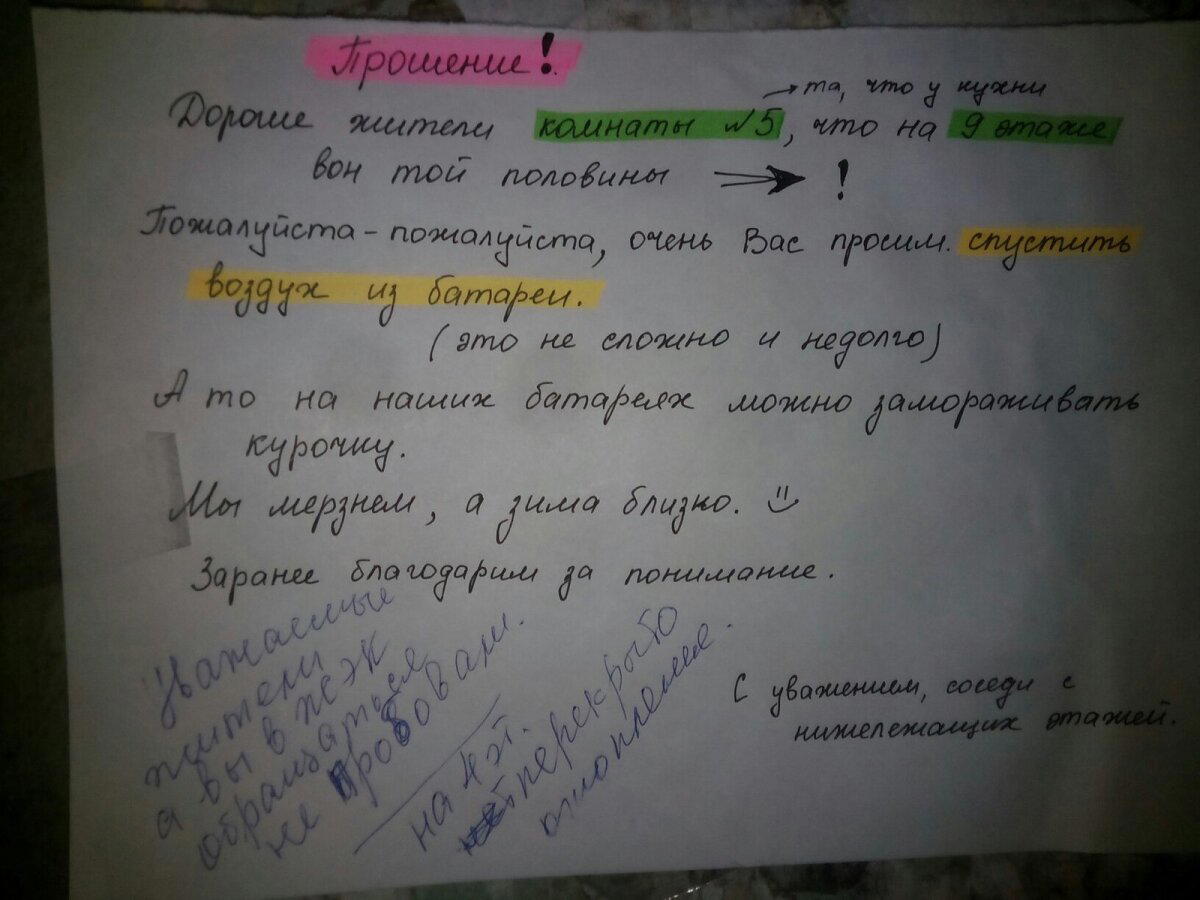 Прошение!
→ та, что у кухни
Дорогие жители комнаты №5, что на 9 этаже
вон той половины → !
Пожалуйста-пожалуйста, очень Вас просим спустить
воздух из батареи.
(это не сложно и недолго)
А то на наших батареях можно замораживать
курочку.
Мы мерзнем, а зима близко.
Заранее благодарим за понимание.
С уважением, соседи с
нижележащих этажей.
Уважаемые
жители
а вы в ЖЭК
обращаться
не пробовали.
на 4 эт.
перекрыто
отопление.